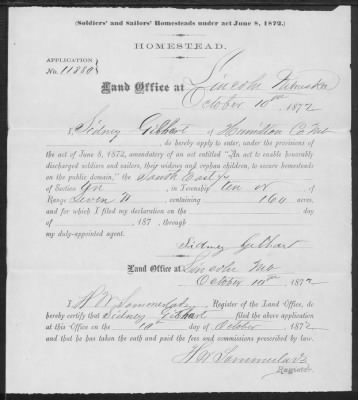 (Soldiers' and Sailors' Homesteads under act June 8, 1872.)
HOMESTEAD.
APPLICATION
No. 11880
Land Office at Lincoln Nebraska
October 10th 1872
I, Sidney Gibhart of Hamilton Co Neb
, do hereby apply to enter, under the provisions of
the act of June 8, 1872, amendatory of an act entitled "An act to enable honorably
discharged soldiers and sailors, their widows and orphan children, to secure homesteads
on the public domain," the South East 1/4
of Section, in Township Ten N of
Range Seven W containing 160 acres,
and for which I filed my declaration on the day
of , 187 , through
my duly-appointed agent.
Sidney Gibhart
Land Office at Lincoln Neb
October 10th 1872
I, Register of the Land Office, do
hereby certify that Sidney Gibhart filed the above application
at this Office on the 10th day of October, 1872
and that he has taken the oath and paid the fees and commissions prescribed by law.
Register.